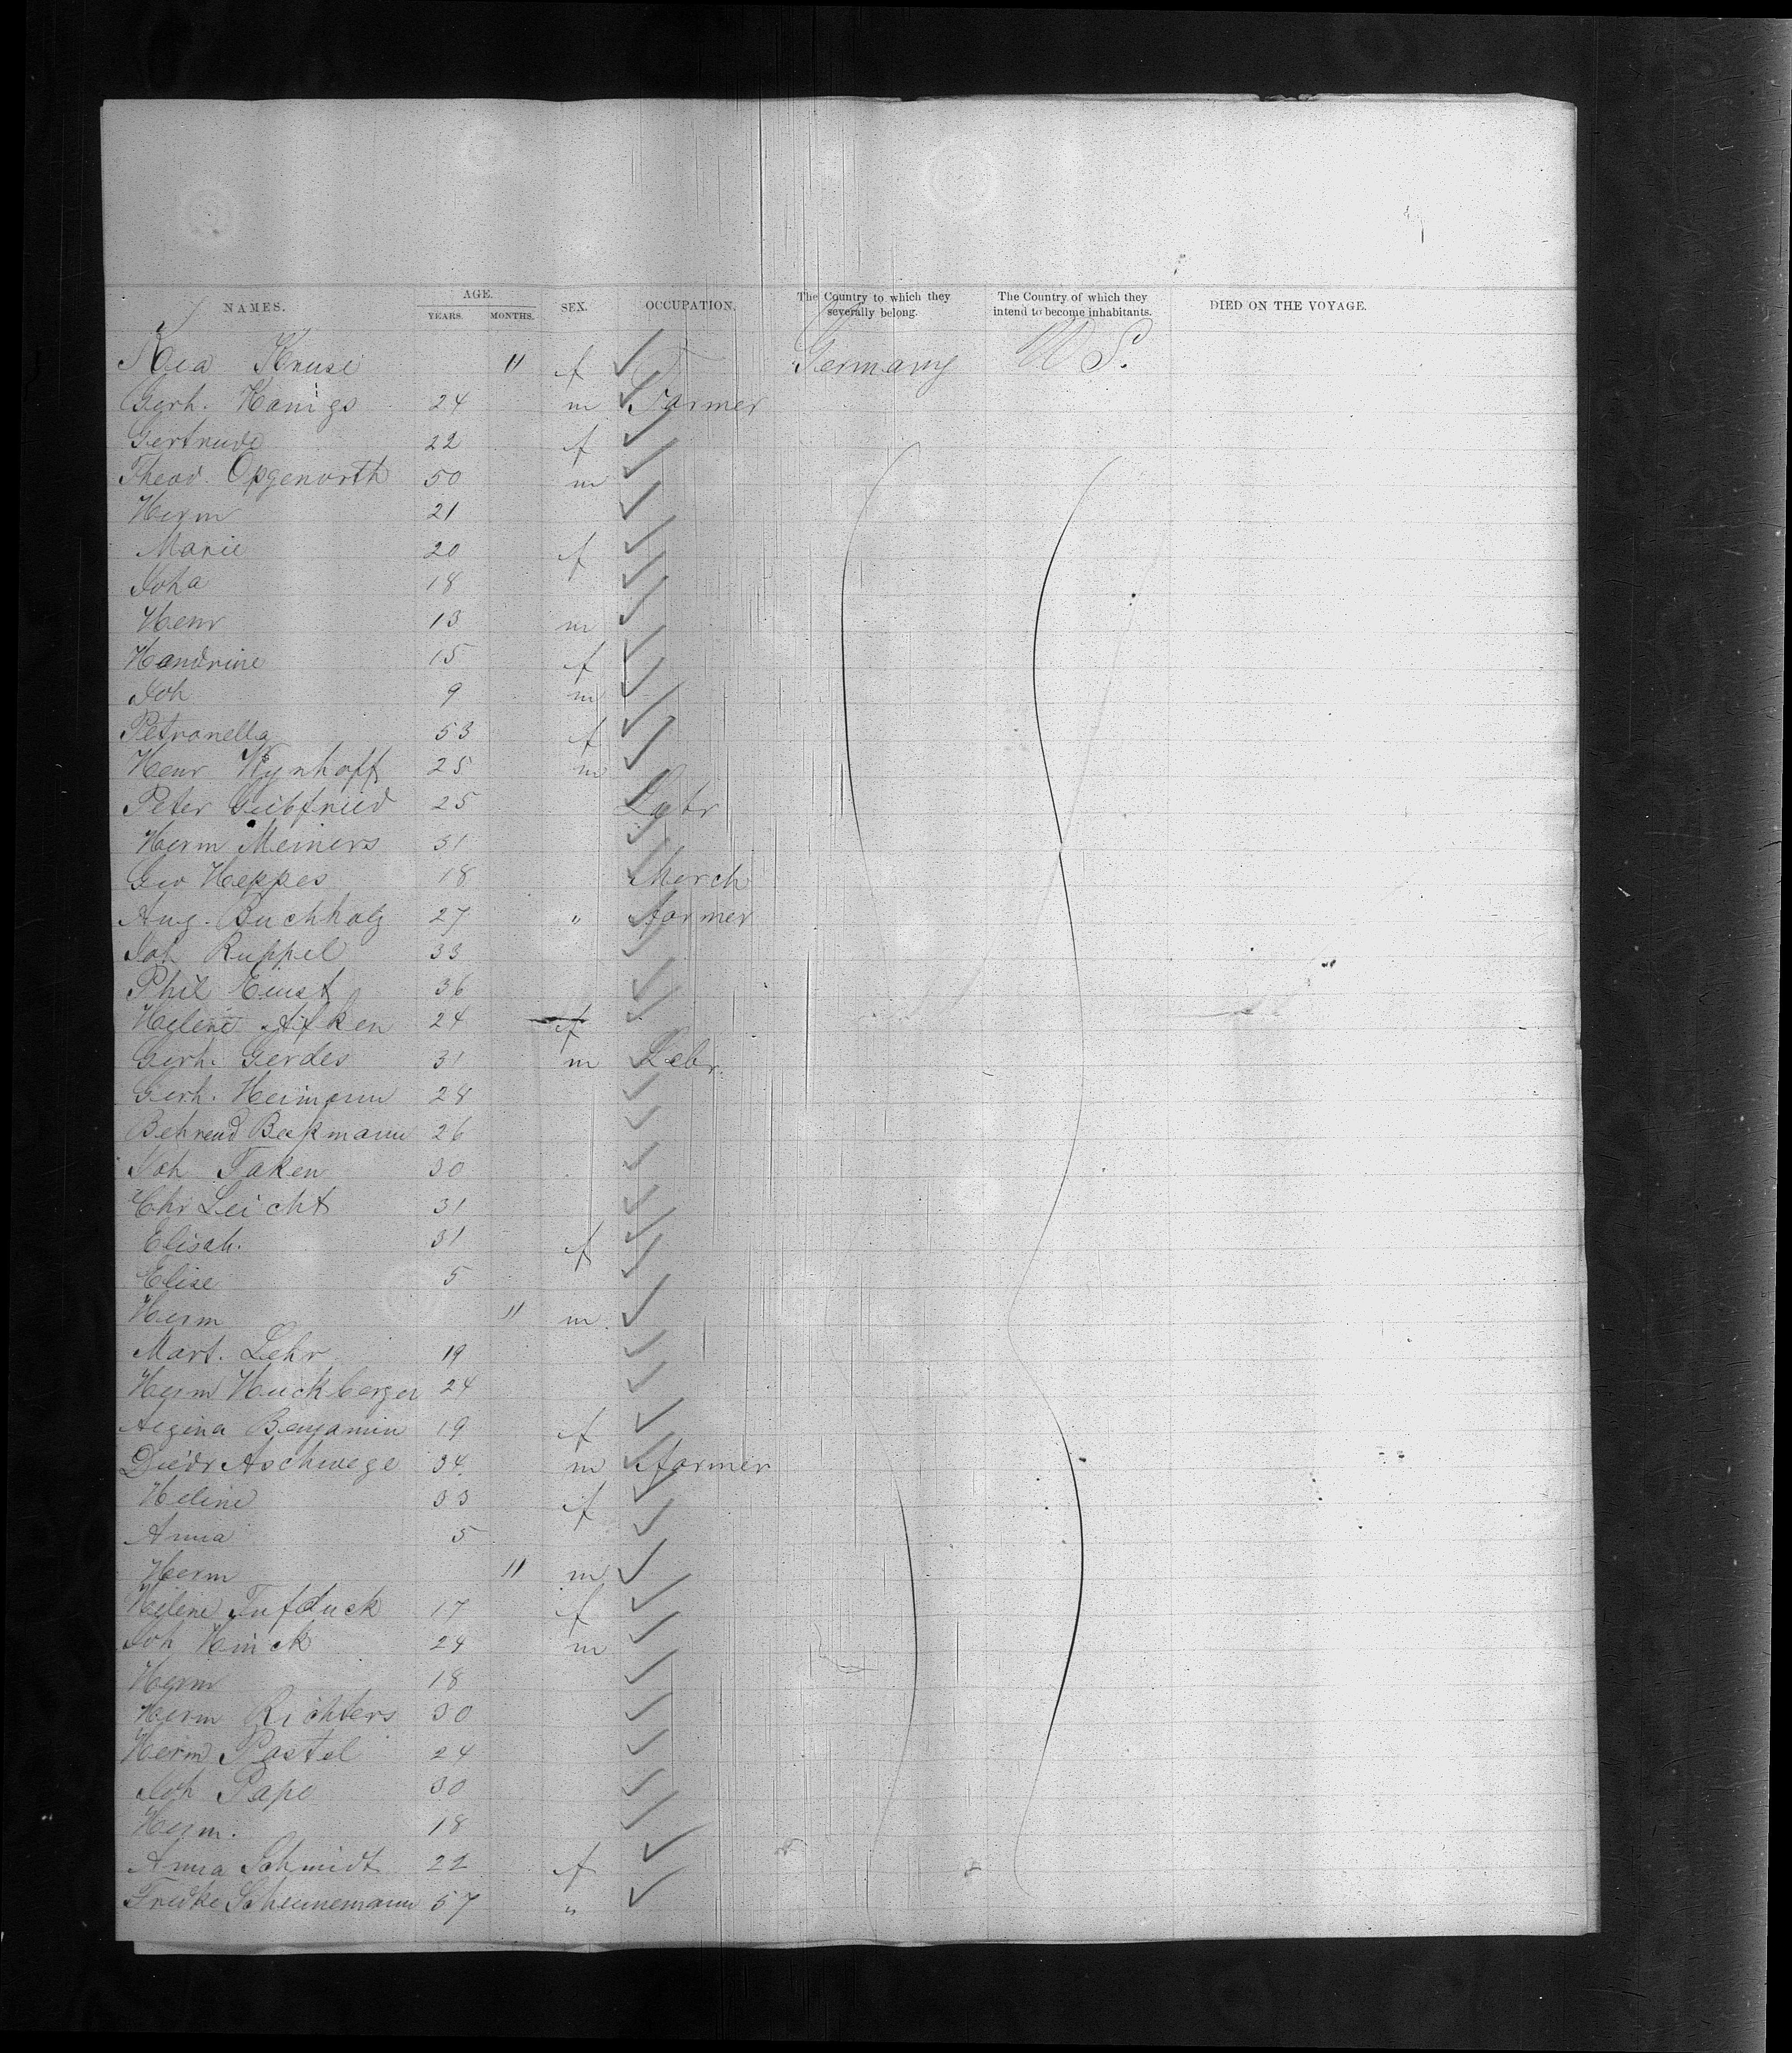 NAMES. AGE. YEARS. MONTHS. SEX. OCCUPATION. The Country to which they severally belong. The Country of which they intend to become inhabitants. DIED ON THE VOYAGE.
Kruse 11 f Germany U S.
Gerh. Konigs 24 m Farmer
Gertrude 22 f
Theod. Opgenorth 50 m
Herm 21
Marie 20 f
Joha 18
Henr 13 m
Handrine 15 f
Joh 9 m
Petronella 53 f
Henr Wynhoff 25 m
Peter 25 Labr
Herm Meiners 31
Geo Heppes 18 Merch
Aug. Buchholz 27 " farmer
Joh Ruppel 33
Phil Ernst 36
Helene 24 f
Gerh. Gerdes 31 m Labr.
Gerh. Heimann 28
Behrend Beekmann 26
Joh Taken 30
Chr Leicht 31
Elisab. 31 f
Elise 5
Herm 11 m
Mart. Lehr 19
Herm Huckberger 24
Regina Benjamin 19 f
Diedr Aschwege 34 m farmer
Helene 33 f
Anna 5
Herm 11 m
Helene 17 f
Joh Hinck 24 m
Herm 18
Herm Richters 30
Herm Postel 24
Joh Pape 30
Herm. 18
Anna Schmidt 22 f
Fredke Scheunemann 57 "